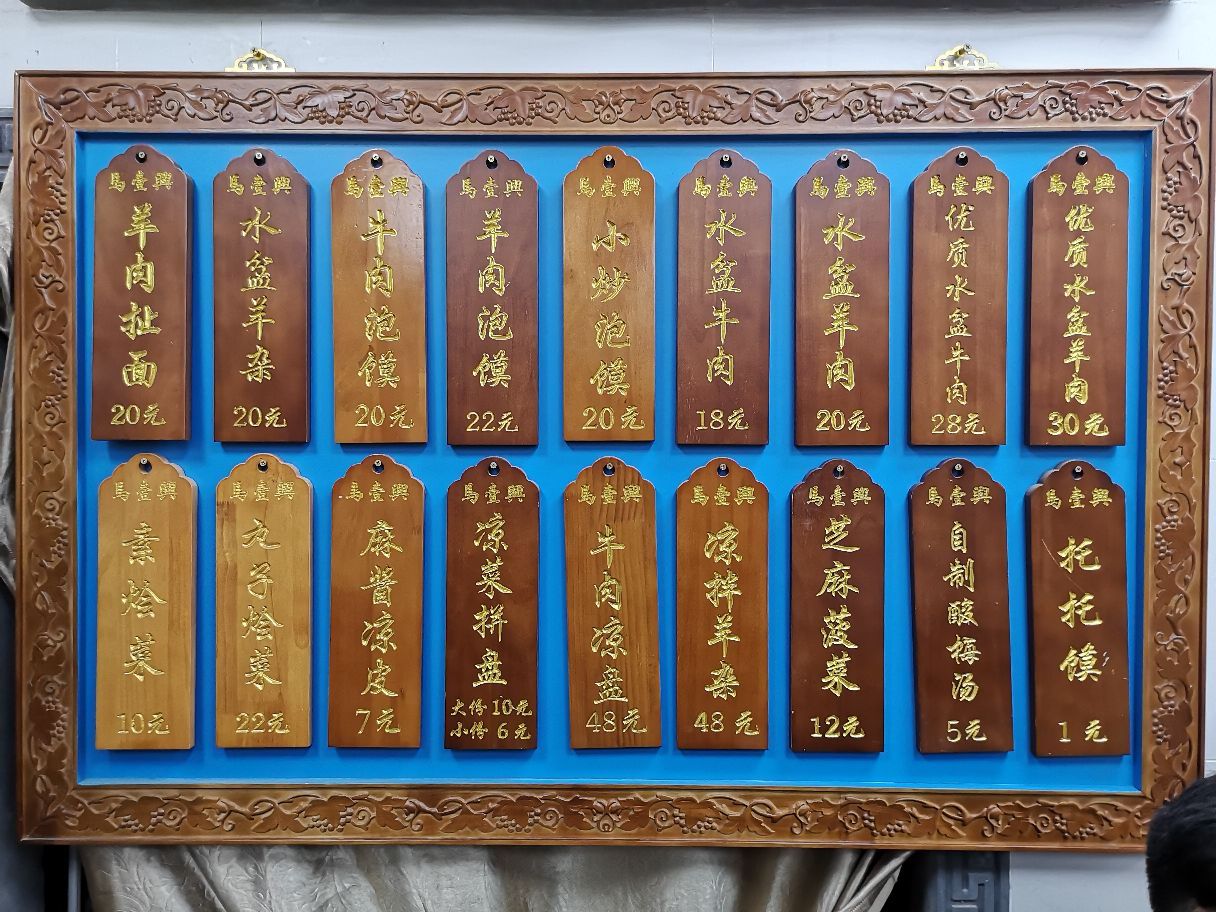 馬壹興
羊肉扯面
20元
馬壹興
水盆羊杂
20元
馬壹興
牛肉泡馍
20元
馬壹興
羊肉泡馍
22元
馬壹興
小炒泡馍
20元
馬壹興
水盆牛肉
18元
馬壹興
水盆羊肉
20元
馬壹興
优质水盆牛肉
28元
馬壹興
优质水盆羊肉
30元
馬壹興
素烩菜
10元
馬壹興
丸子烩菜
22元
馬壹興
麻酱凉皮
7元
馬壹興
凉菜拼盘
大份 10元
小份 6元
馬壹興
牛肉凉盘
48元
馬壹興
凉拌羊杂
48元
馬壹興
芝麻菠菜
12元
馬壹興
自制酸梅汤
5元
馬壹興
托托馍
1元